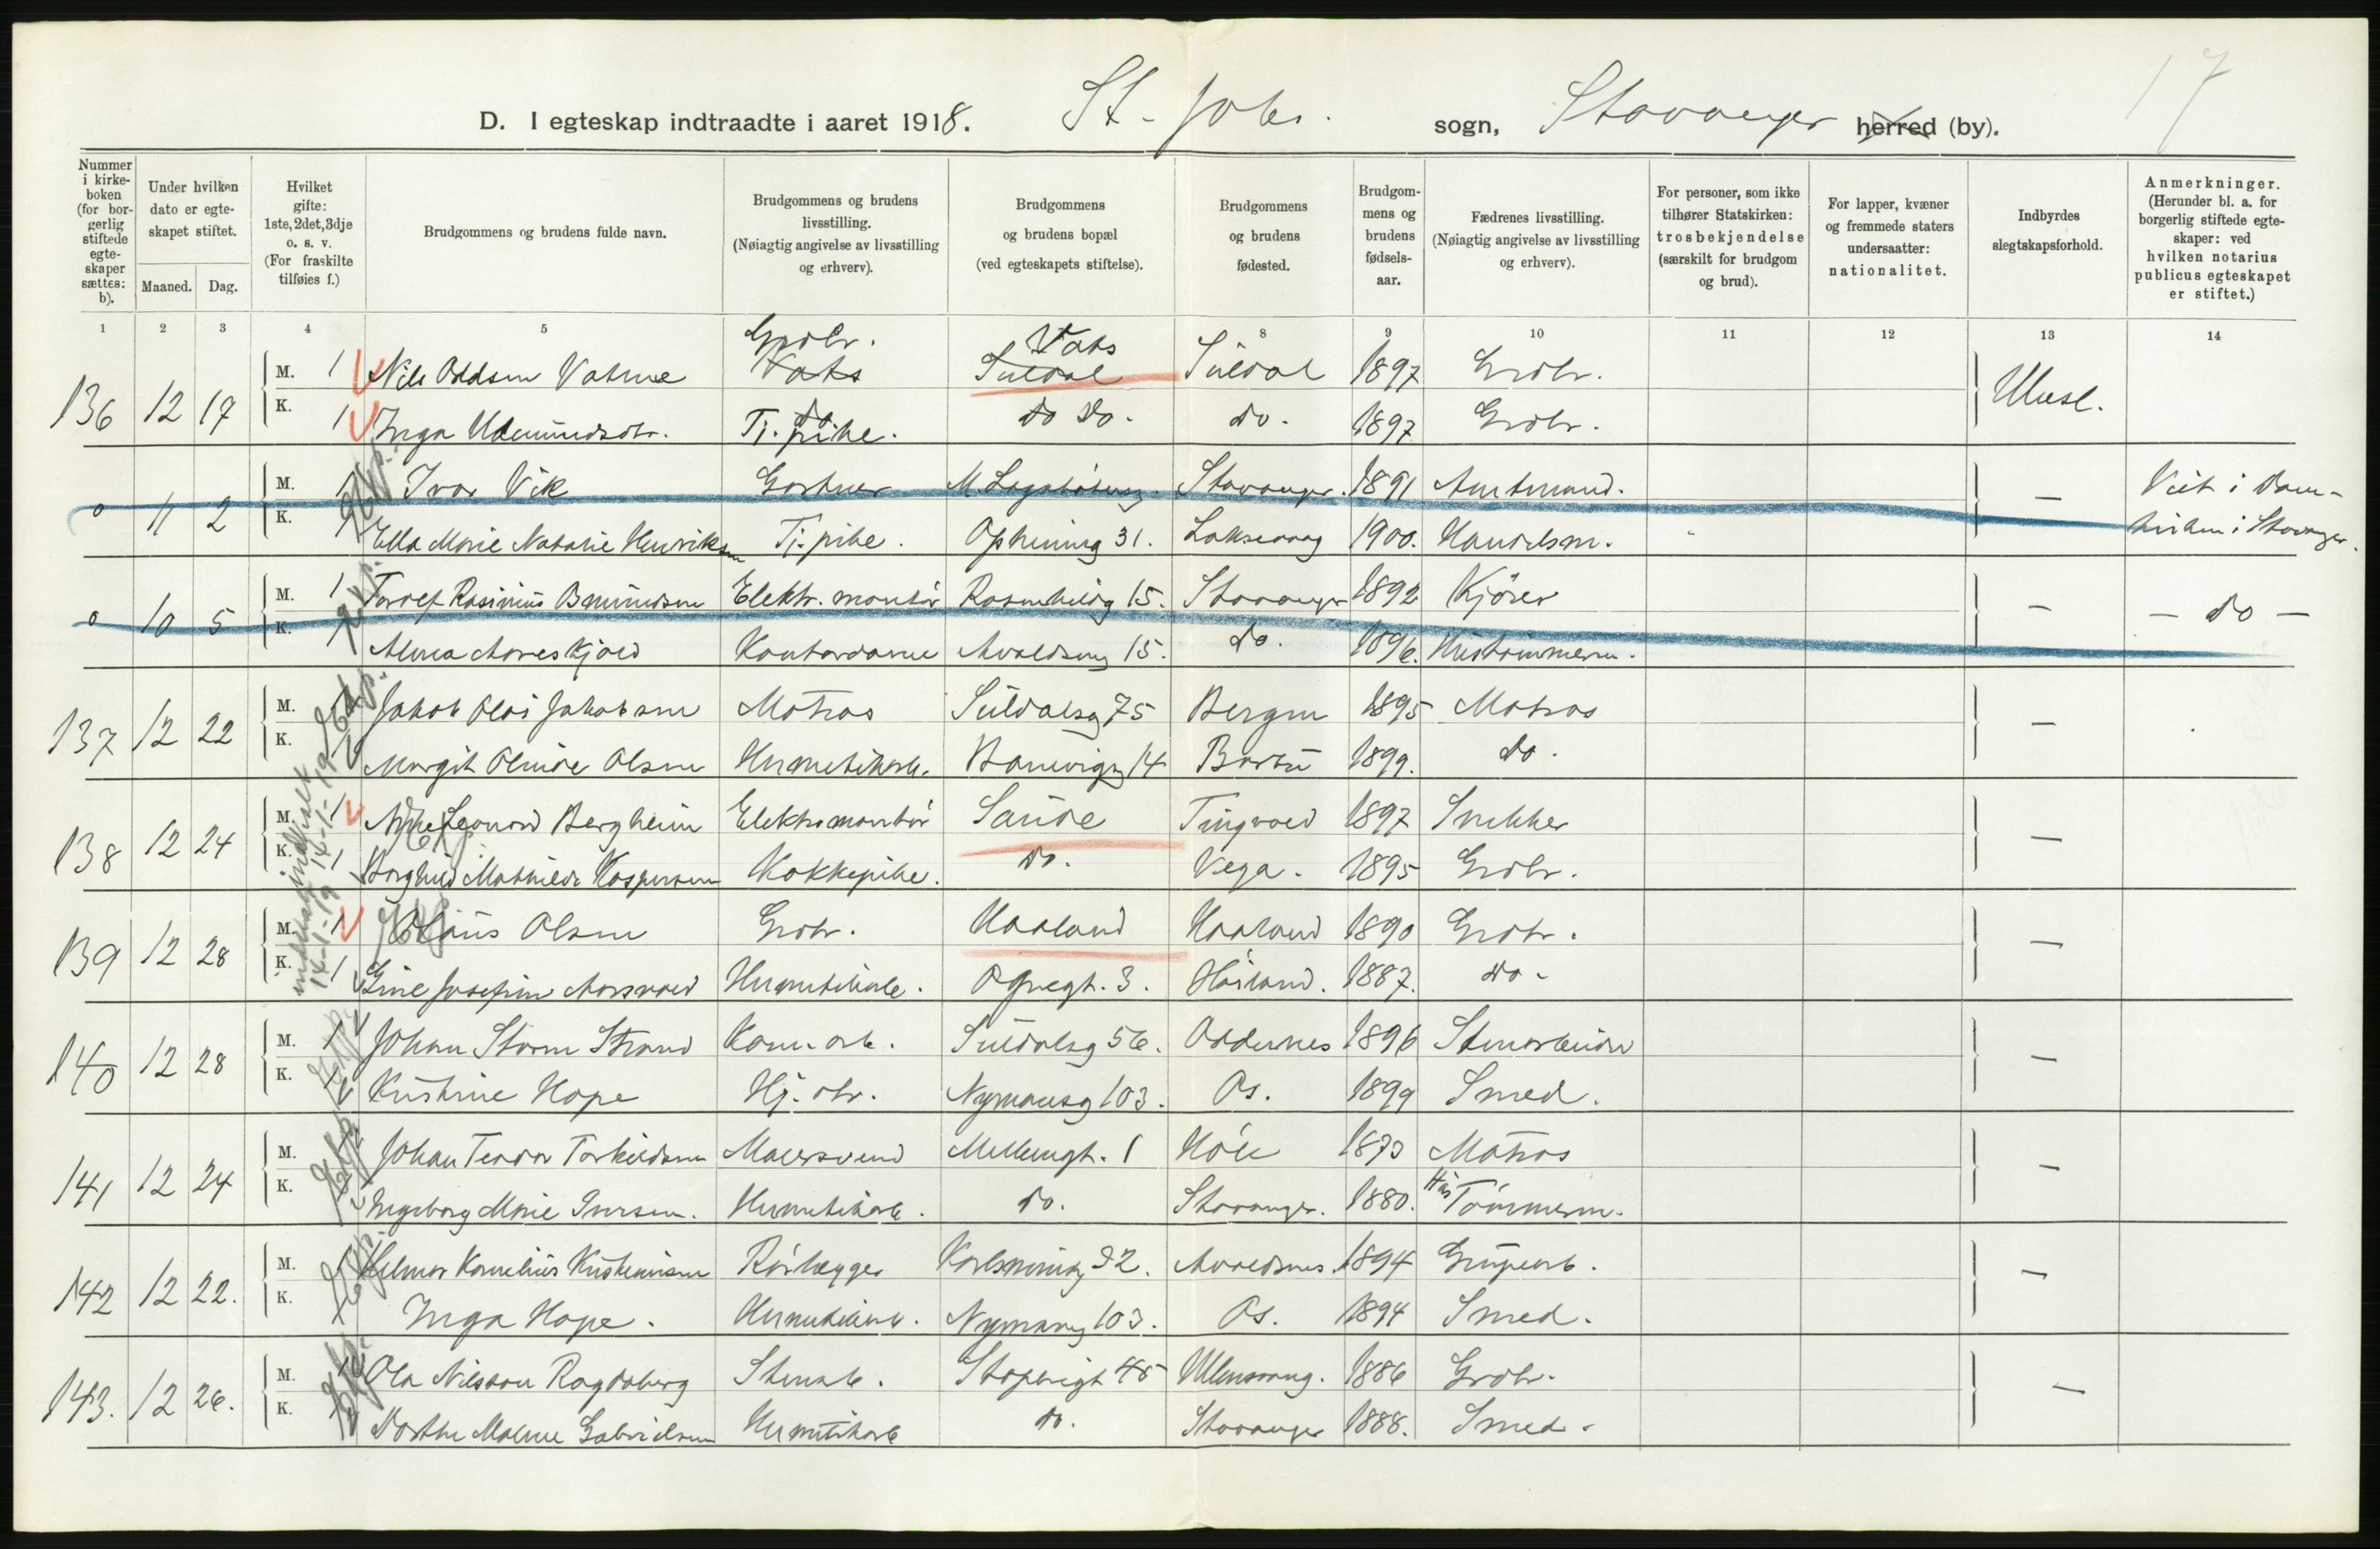 17
D. I egteskap indtraadte i aaret 1918. St. Johs. sogn, Stavanger herred (by).
Nummer i kirke-boken (for bor-gerlig stiftede egte-skaper sættes: b).
Under hvilken dato er egte-skapet stiftet.
Maaned. Dag.
Hvilket gifte: 1ste, 2det, 3dje o. s. v. (For fraskilte tilføies f.)
Brudgommens og brudens fulde navn.
Brudgommens og brudens livsstilling. (Nøiagtig angivelse av livsstilling og erhverv).
Brudgommens og brudens bopæl (ved egteskapets stiftelse).
Brudgommens og brudens fødested.
Brudgom-mens og brudens fødsels-aar.
Fædrenes livsstilling. (Nøiagtig angivelse av livsstilling og erhverv).
For personer, som ikke tilhører Statskirken: trosbekjendelse (særskilt for brudgom og brud).
For lapper, kvæner og fremmede staters undersaatter: nationalitet.
Indbyrdes slegtskapsforhold.
Anmerkninger. (Herunder bl. a. for borgerlig stiftede egte-skaper: ved hvilken notarius publicus egteskapet er stiftet.)
1 2 3 4 5 8 9 10 11 12 13 14
Grdbr. Vats
136 12 17 M. 1 Nils Oddsen Vatne Vats Suldal Suldal 1897 Grdbr. Ubesl.
K. 1 Inga Tj. pike. do do. do. 1897 Grdbr.
0 11 2 M. 1 Ivar Vik Gartner Stavanger. 1891 Amtmand. — Viet i Dom-
K. 1 Ella Marie Natalie Henriksen Tj. pike. 31. Laksevaag 1900. Handelsm. kirken i Stavanger.
0 10 5 M. 1 Torolf Rasinius Elektr. montør 15. Stavanger 1892 Kjører — — do —
K. 1 Alma Aanes Kjold Kontordame Avaldsnsg 15. do. 1896. Hustømmerm.
137 12 22 M. 1 Jakob Olai Jakobsen Matros Suldalsg 75 Bergen 1895 Matros —
K. 1 Margit Olsen Hermetikarb. 14 1899. do.
138 12 24 M. 1 Leonard Bergheim Elektromontør Saude Tingvold 1897 Snekker —
K. 1 Borghild Mathilde Kaspersen Kokkepike. do. Vega. 1895 Grdbr.
139 12 28 M. 1 Olaus Olsen Grdbr. Haaland Haaland 1890 Grdbr. —
K. 1 Gine Josefine Hermetikarb. Ognegt. 3. 1887. do.
140 12 28 M. 1 Johan Storm Strand Kom. arb. Suldalsg 56. Oddernes 1896 Stenarbeider —
K. 1 Kristine Hope Hj. dtr. Nymansg 103. Os. 1899 Smed.
141 12 24 M. 1 Johan Teodor Torkildsen Malersvend Mellemgt. 1 Høle 1873 Matros —
K. Ingeborg Marie Iversen. Hermetikarb. do. Stavanger. 1880. Hus Tømmerm.
142 12 22. M. 1 Helmer Kornelius Kristiansen Rørlægger Karlsminneg 92. Avaldsnes. 1894 Grubearb. —
K. Inga Hope. Hermetikarb. Nymansg 103. Os. 1894 Smed.
143. 12 26. M. 1 Ola Nilsson Ragdeberg Stenarb. 45 Ullensvang. 1886 Grdbr. —
K. 1 Dorthe Malene Gabrielsen Hermetikarb do. Stavanger 1888. Smed.